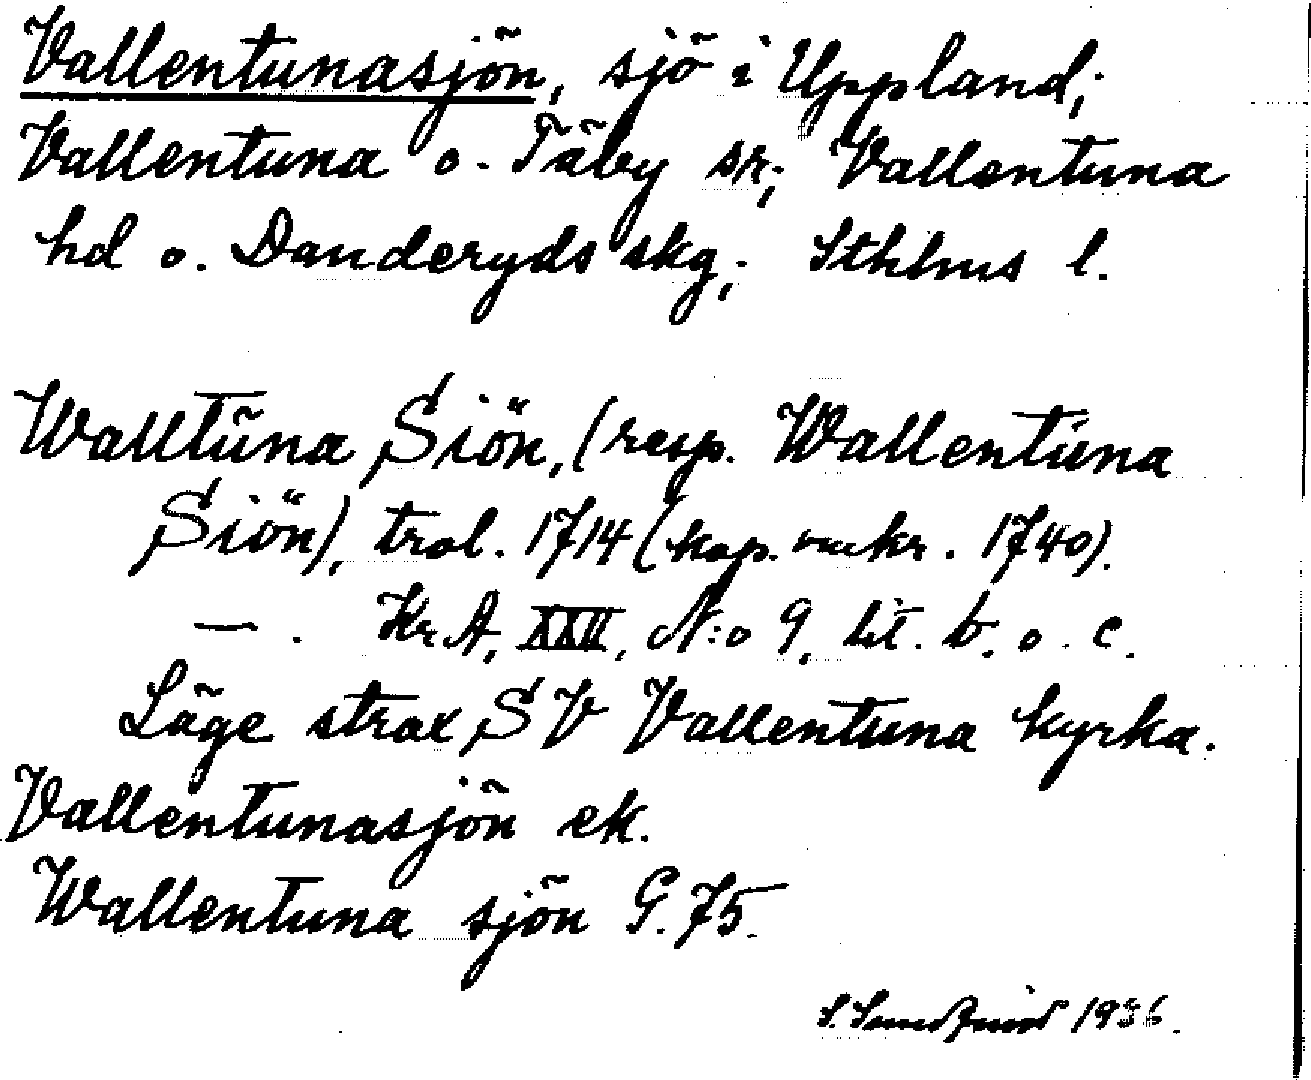 Vallentunasjön, sjö i Uppland;
Vallentuna o. Täby sn; Vallentuna
hd o. Danderyds skg; Sthlms l.
Walltůna Siön, (resp. Wallentůna
Siön), trol. 1714 (kop. omkr. 1740).
—. Kr A, XXII, N:o 9, lit. b. o. c.
Läge strax SV Vallentuna kyrka.
Vallentunasjön ek.
Wallentuna sjön G. 75.
S. Sundqvist 1936.